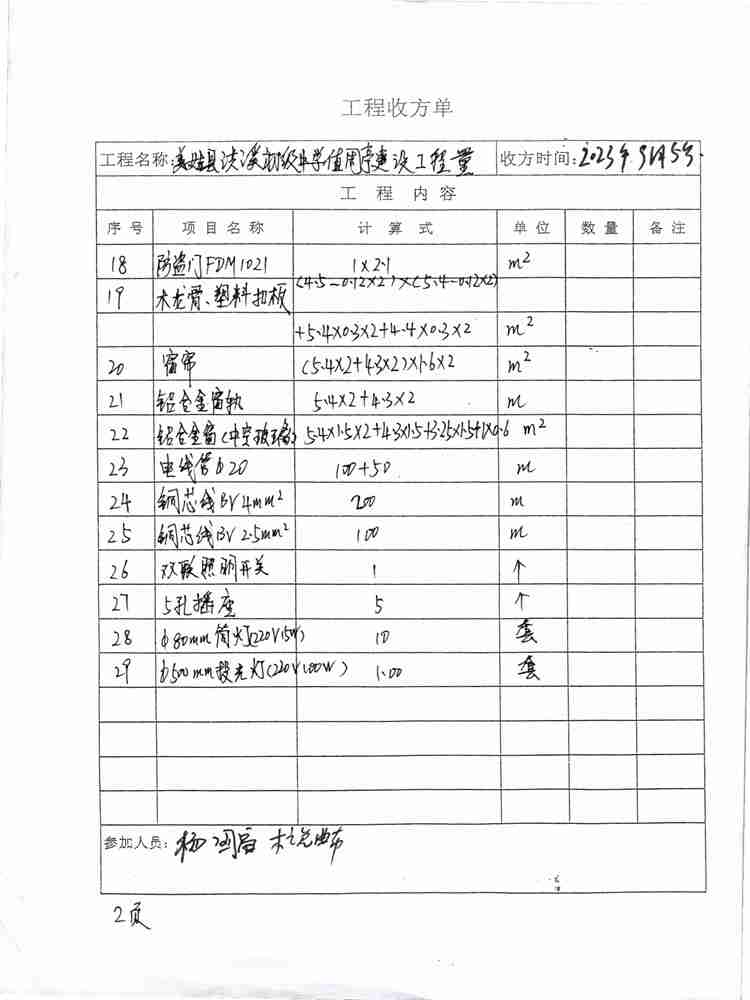 工程收方单
工程名称:美姑县洪溪初级中学值周亭建设工程量 收方时间:2023年9月5号.
工 程 内 容
序 号 项 目 名 称 计 算 式 单 位 数 量 备 注
18 防盗门FDM1021 1×2.1 m²
19 木龙骨、塑料扣板 (4.5-0.12×2)×(5.4-0.12×2)
+5.4×0.3×2+4.4×0.3×2 m²
20 窗帘 (5.4×2+4.3×2)×1.6×2 m²
21 铝合金窗轨 5.4×2+4.3×2 m
22 铝合金窗(中空玻璃) 5.4×1.5×2+4.3×1.5+3.25×1.5+1×0.6 m²
23 电线管φ20 100+50 m
24 铜芯线BV4mm² 200 m
25 铜芯线BV2.5mm² 100 m
26 双联照明开关 1 个
27 5孔插座 5 个
28 φ80mm筒灯(220V15W) 10 套
29 φ500mm投光灯(220V100W) 1.00 套
参加人员:杨
2页